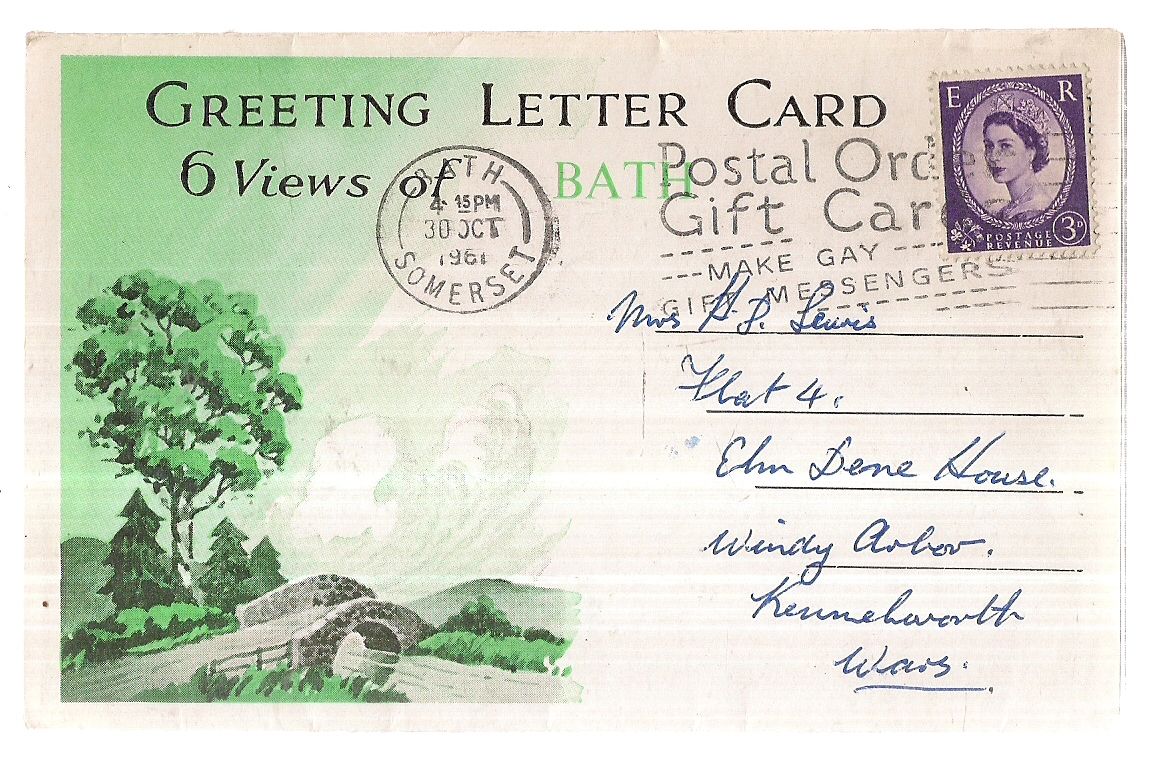 GREETING LETTER CARD
6 Views of BATH
BATH
4 15 PM
30 OCT
1961
SOMERSET
Postal Ord
Gift Car
MAKE GAY
GIFT MESSENGERS
E R
POSTAGE
REVENUE
3D
Mrs H. J. Lewis
Flat 4.
Elm Dene House.
Windy Arbor.
Kennelworth
Wars.